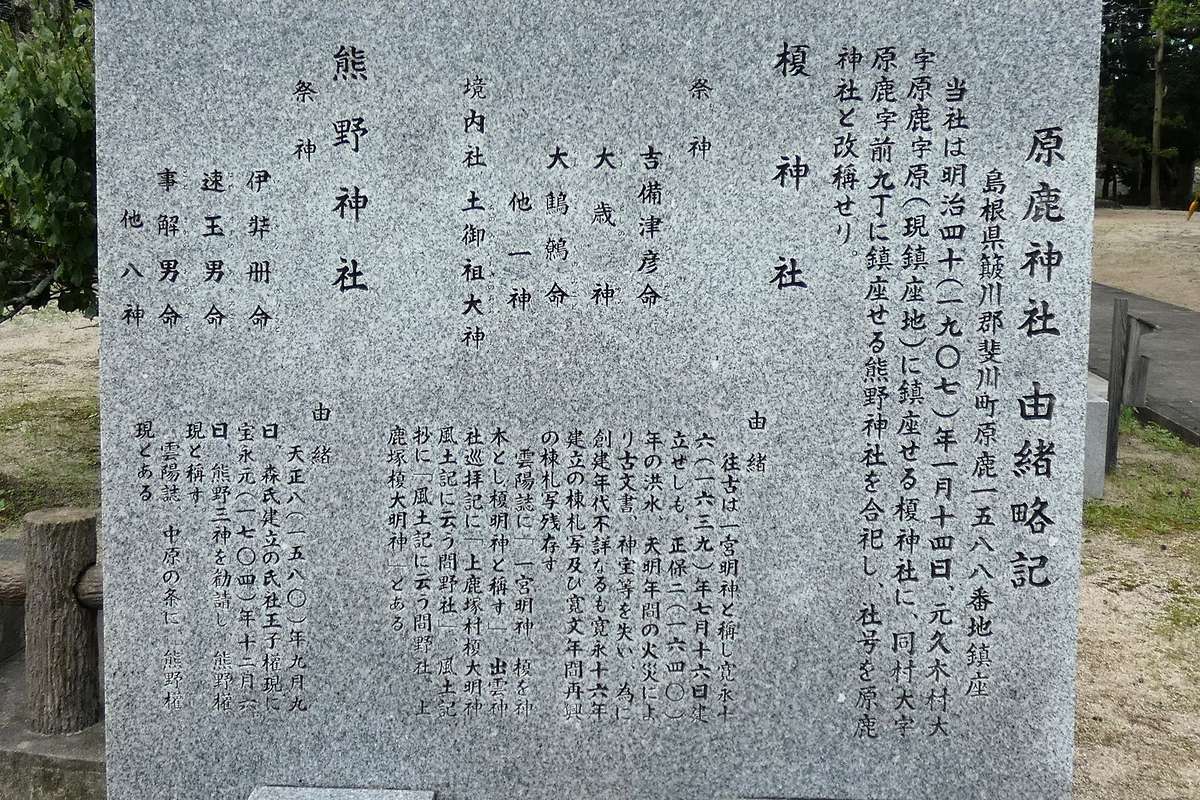 原鹿神社 由緒略記
島根県簸川郡斐川町原鹿一五八八番地鎮座
当社は明治四十(一九〇七)年一月十四日、元久木村大
字原鹿字原(現鎮座地)に鎮座せる榎神社に、同村大字
原鹿字前九丁に鎮座せる熊野神社を合祀し、社号を原鹿
神社と改稱せり。
榎神社
祭神
吉備津彦命
大歳神
大鷦鷯命
他一神
境内社 土御祖大神
由緒
往古は一宮明神と稱し寛永十
六(一六三九)年七月十六日建
立せしも、正保二(一六四〇)
年の洪水、天明年間の火災によ
り古文書、神宝等を失い、為に
創建年代不詳なるも寛永十六年
建立の棟札写及び寛文年間再興
の棟札写残存す
雲陽誌に「一宮明神 榎を神
木とし榎明神と稱す」出雲神
社巡拝記に「上鹿塚村榎大明神
風土記に云う間野社」風土記
抄に「風土記に云う間野社、上
鹿塚榎大明神」とある
熊野神社
祭神
伊弉册命
速玉男命
事解男命
他八神
由緒
天正八(一五八〇)年九月九
日、森氏建立の氏社王子権現に
宝永元(一七〇四)年十二月六
日、熊野三神を勧請し 熊野権
現と稱す
雲陽誌 中原の条に 熊野権
現とある